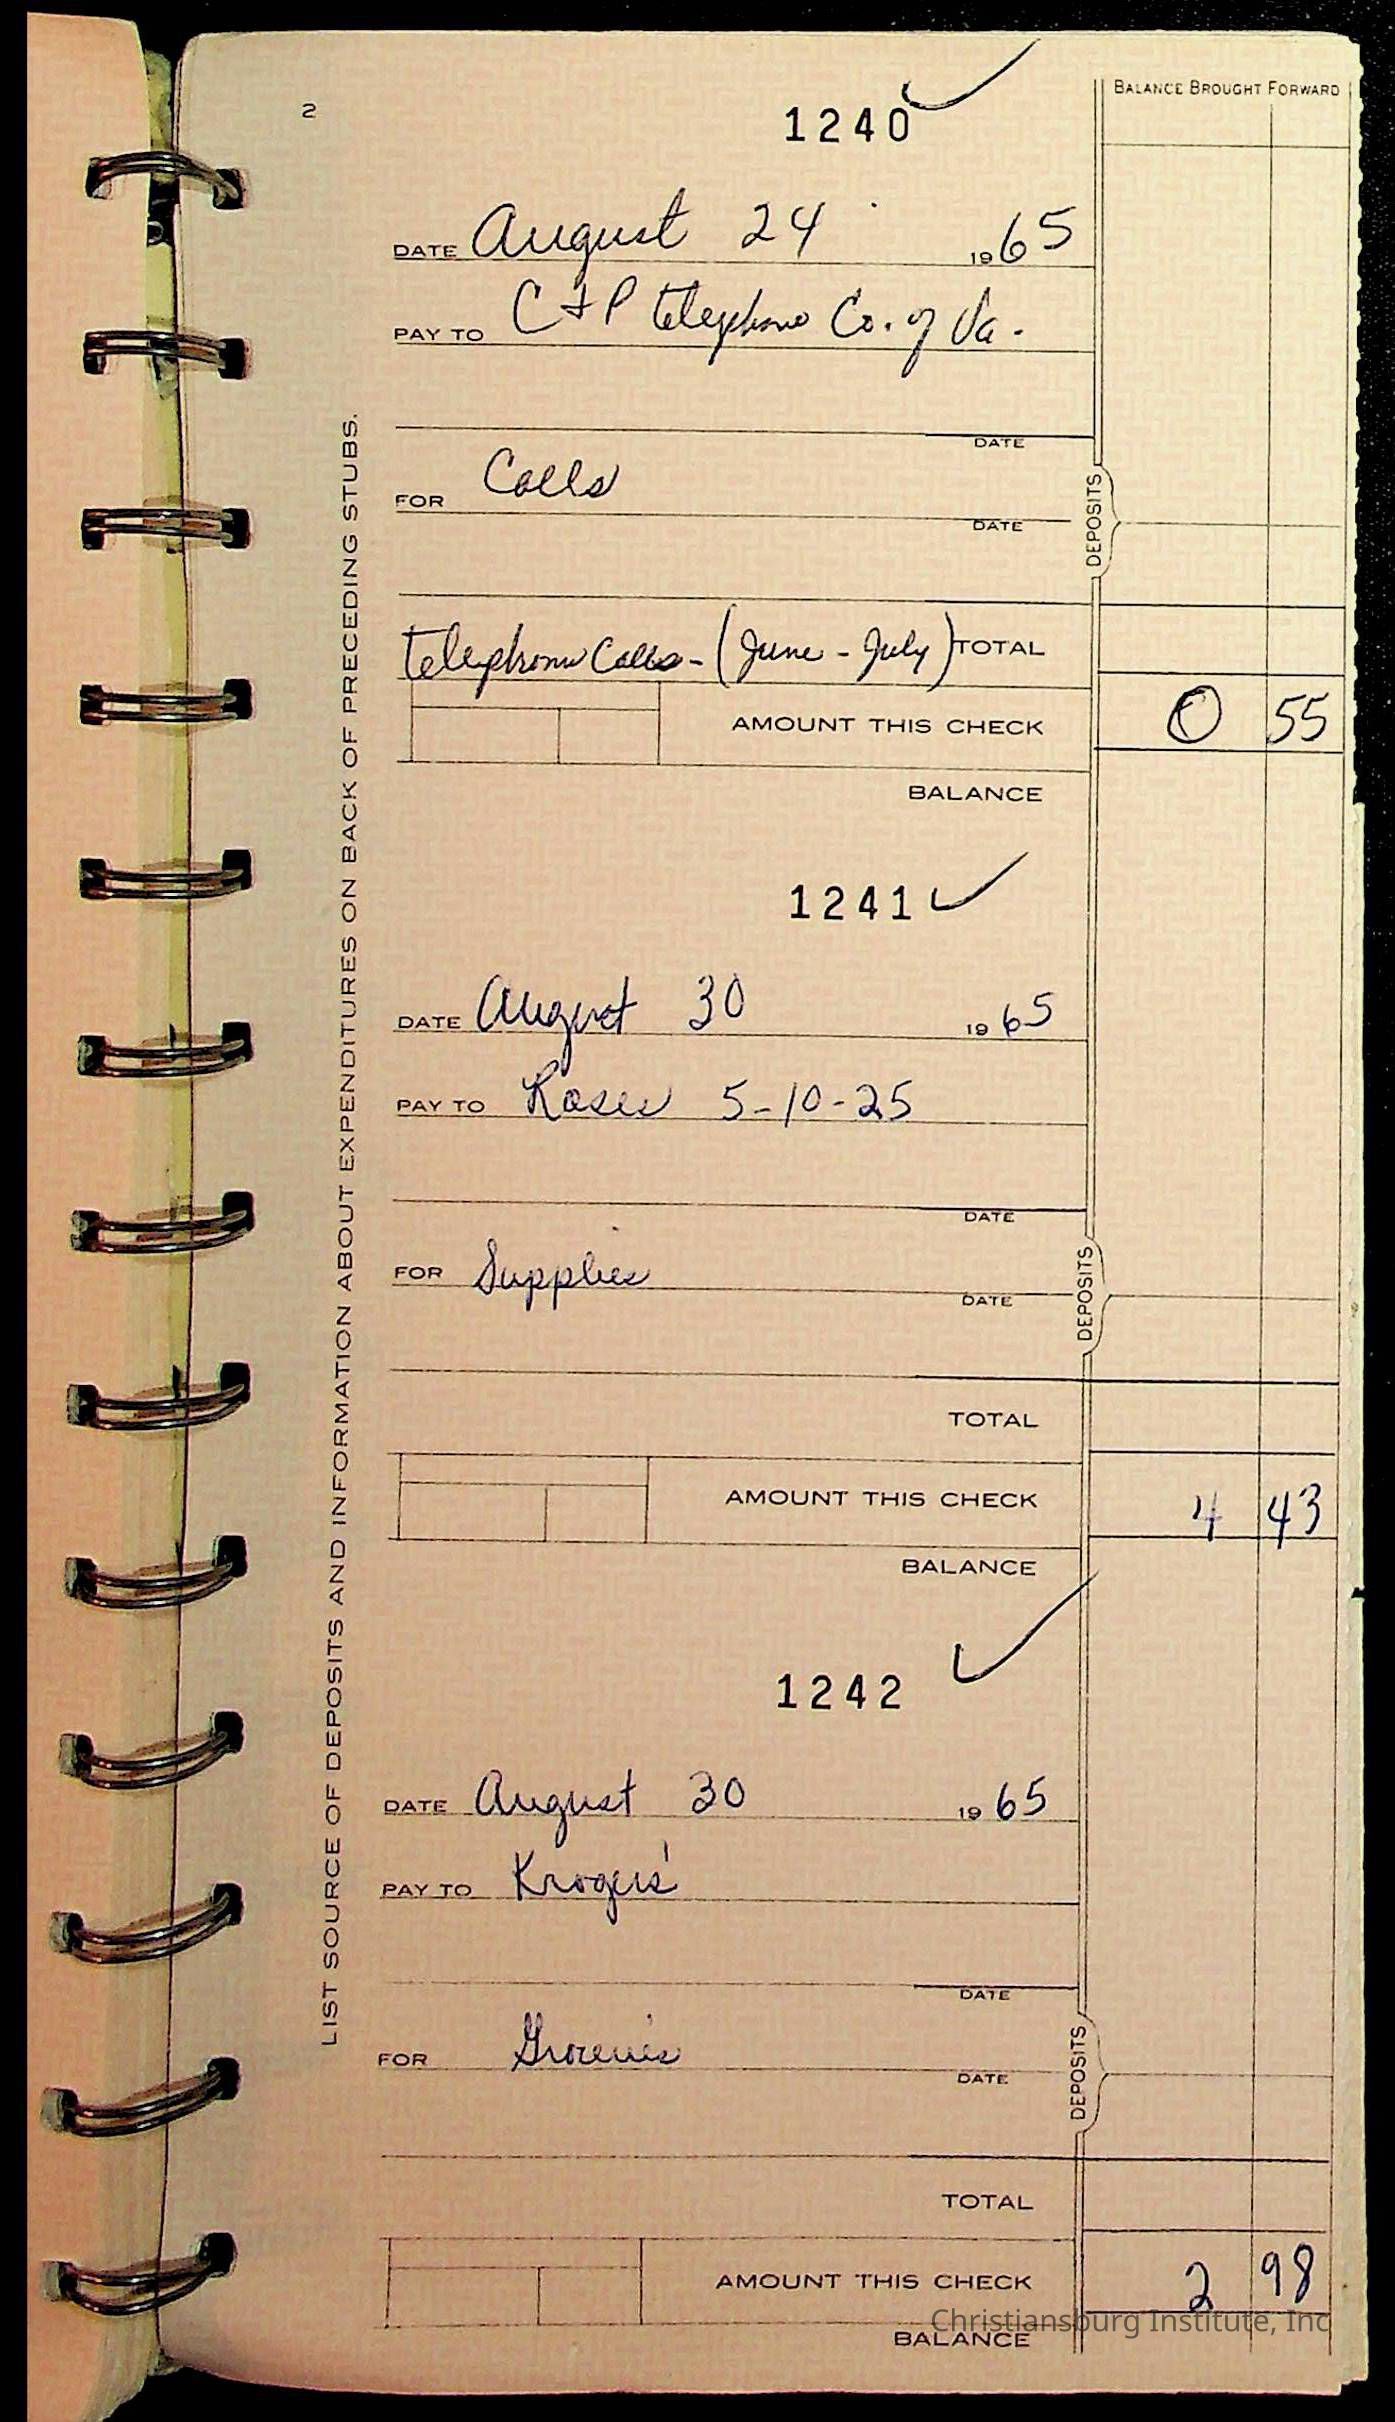 2
1240
BALANCE BROUGHT FORWARD
DATE August 24 1965
PAY TO C & P telephone Co. of Va.
DATE
FOR Calls
DATE
DEPOSITS
telephone Calls - (June - July) TOTAL
AMOUNT THIS CHECK 0 55
BALANCE
1241
DATE August 30 1965
PAY TO Roses 5-10-25
DATE
FOR Supplies
DATE
DEPOSITS
TOTAL
AMOUNT THIS CHECK 4 43
BALANCE
1242
DATE August 30 1965
PAY TO Kroger's
DATE
FOR Groceries
DATE
DEPOSITS
TOTAL
AMOUNT THIS CHECK 2 98
BALANCE
LIST SOURCE OF DEPOSITS AND INFORMATION ABOUT EXPENDITURES ON BACK OF PRECEDING STUBS.
Christiansburg Institute, Inc